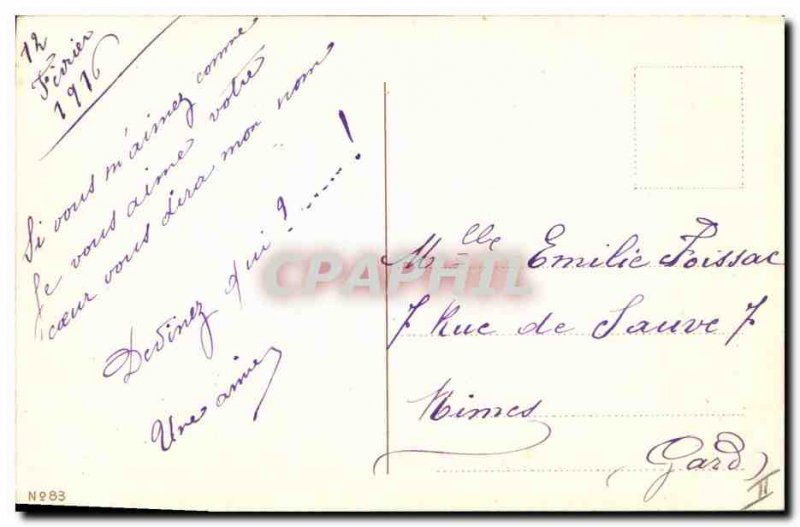 12
Février
1916
Si vous m'aimez comme
Je vous aime votre
cœur vous dira mon nom
Devinez qui ? ......!
Une amie
Mlle Emilie Foissac
7 Rue de Sauve 7
Nimes
(Gard)
II
CPAPHIL
Nº83